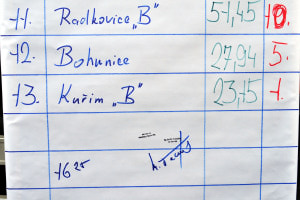 11. Radkovice „B" 51,45 10.
12. Bohunice 27,94 5.
13. Kuřim „B" 23,15 1.
16 25